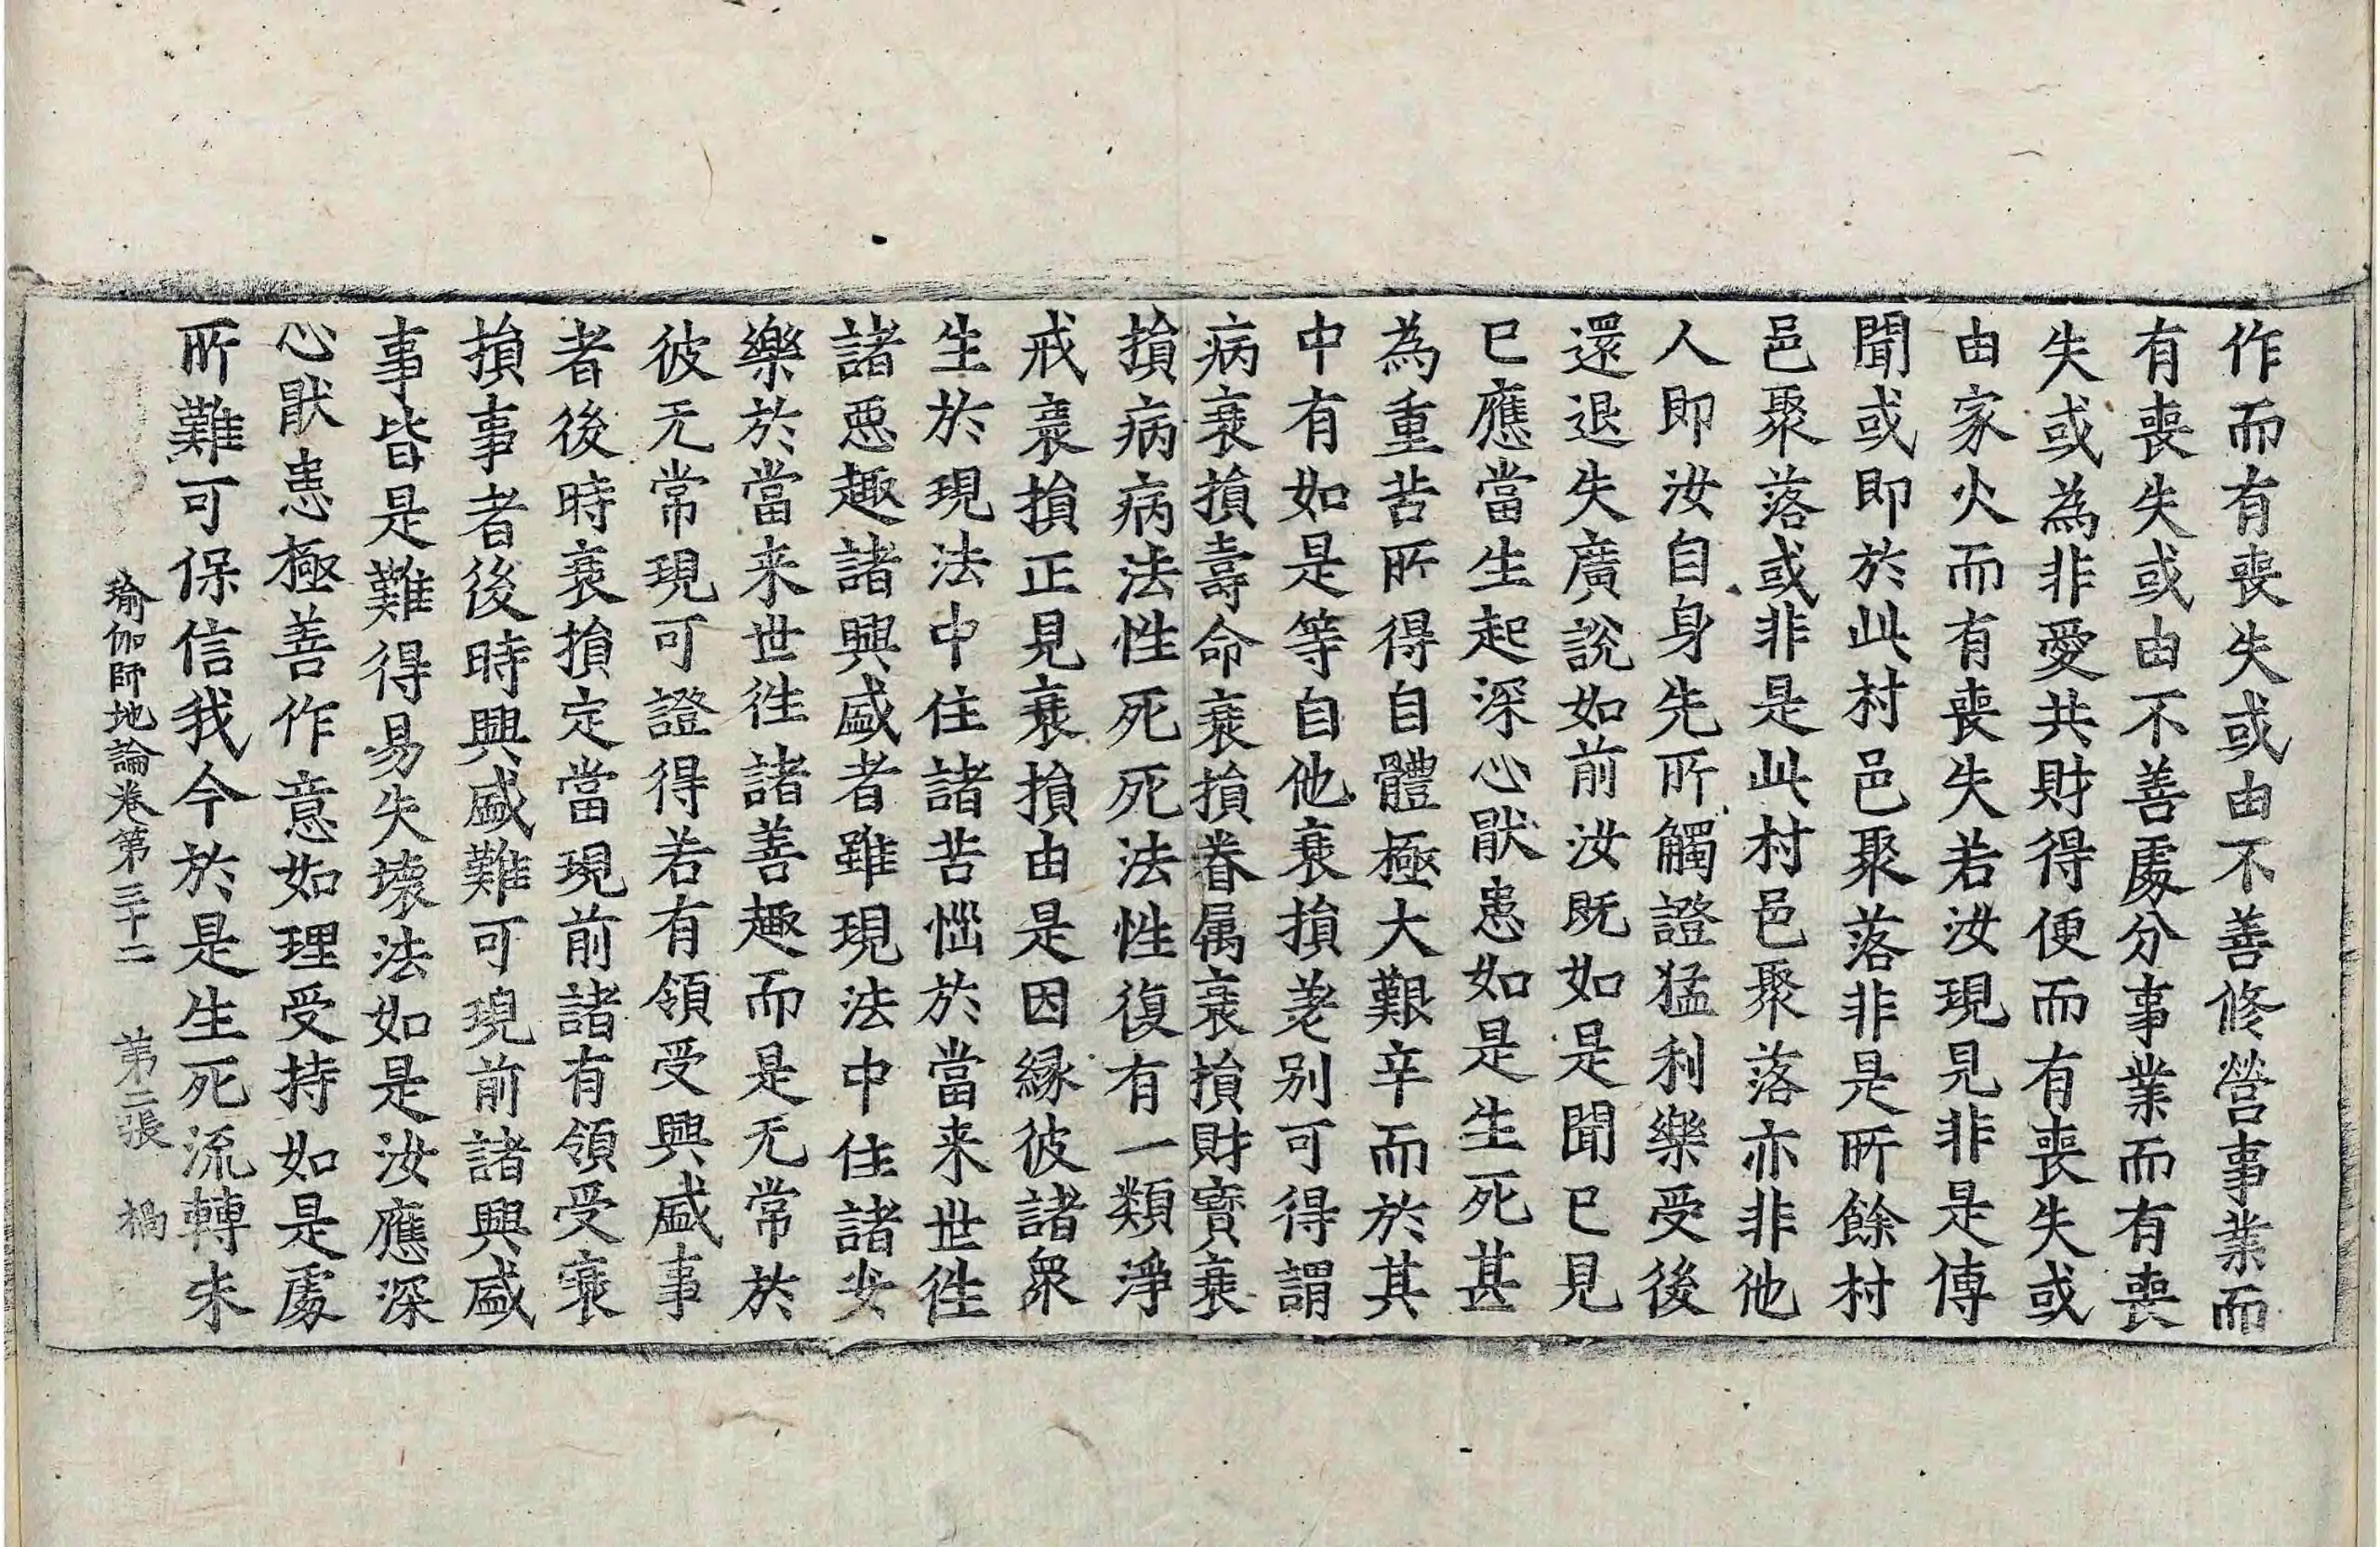 作而有喪失或由不善修營事業而
有喪失或由不善處分事業而有喪
失或為非愛共財得便而有喪失或
由家火而有喪失若汝現見非是傳
聞或即於此村邑聚落非是所餘村
邑聚落或非是此村邑聚落亦非他
人即汝自身先所觸證猛利樂受後
還退失廣說如前汝既如是聞已見
已應當生起深心猒患如是生死甚
為重苦所得自體極大艱辛而於其
中有如是等自他衰損差別可得謂
病衰損壽命衰損眷属衰損財寶衰
損病病法性死死法性復有一類淨
戒衰損正見衰損由是因緣彼諸衆
生於現法中住諸苦惱於當来世往
諸惡趣諸興盛者雖現法中住諸安
樂於當来世往諸善趣而是无常於
彼无常現可證得若有領受興盛事
者後時衰損定當現前諸有領受衰
損事者後時興盛難可現前諸興盛
事皆是難得易失壞法如是汝應深
心猒患極善作意如理受持如是處
所難可保信我今於是生死流轉未
瑜伽師地論卷第三十二 第二張 禍